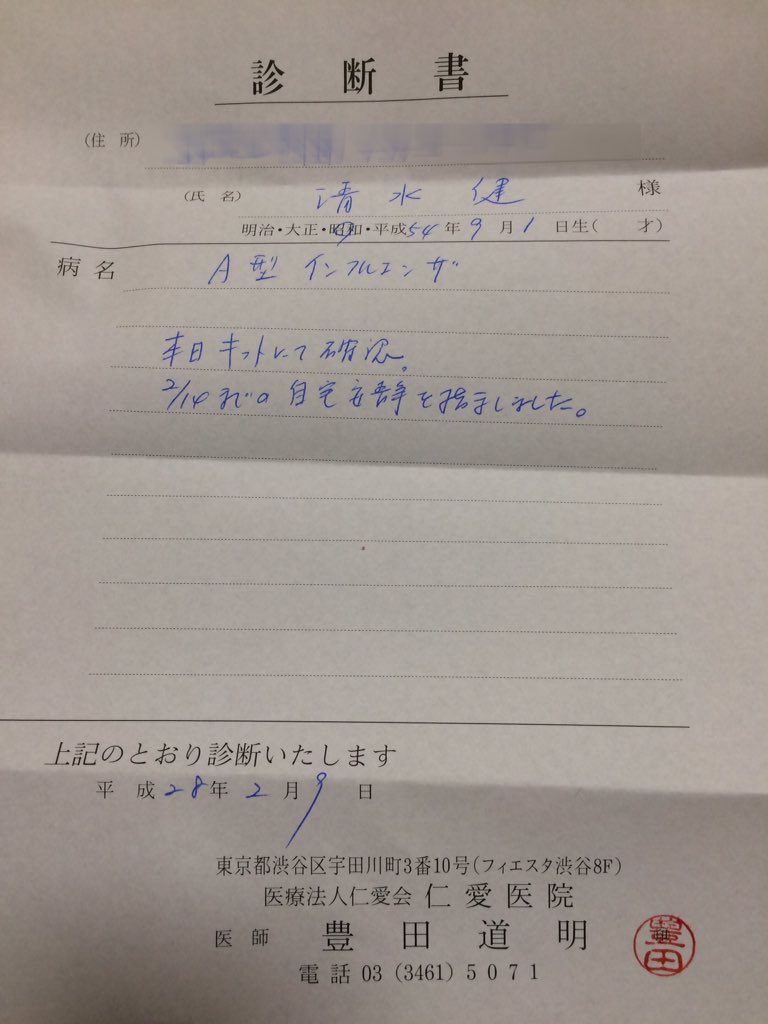 診断書
(住所)
(氏名) 清水 健 様
明治・大正・昭和・平成54年9月1日生( 才)
病名 A型インフルエンザ
本日キットにて確認。
2/14までの自宅安静を指示しました。
上記のとおり診断いたします
平成28年2月9日
東京都渋谷区宇田川町3番10号(フィエスタ渋谷8F)
医療法人仁愛会 仁愛医院
医師 豊田道明
豊田
電話 03 (3461) 5071